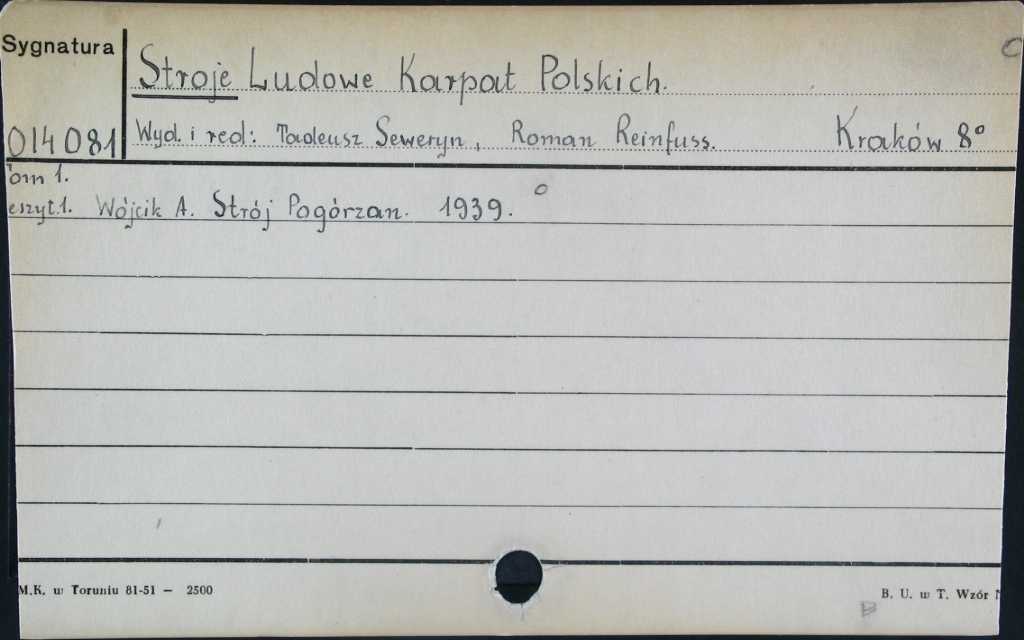 Sygnatura
Stroje Ludowe Karpat Polskich.
014081 Wyd. i red: Tadeusz Seweryn, Roman Reinfuss. Kraków 8°
om 1.
eszyt.1. Wójcik A. Strój Pogórzan. 1939.
M.K. w Toruniu 81-51 — 2500
B. U. w T. Wzór